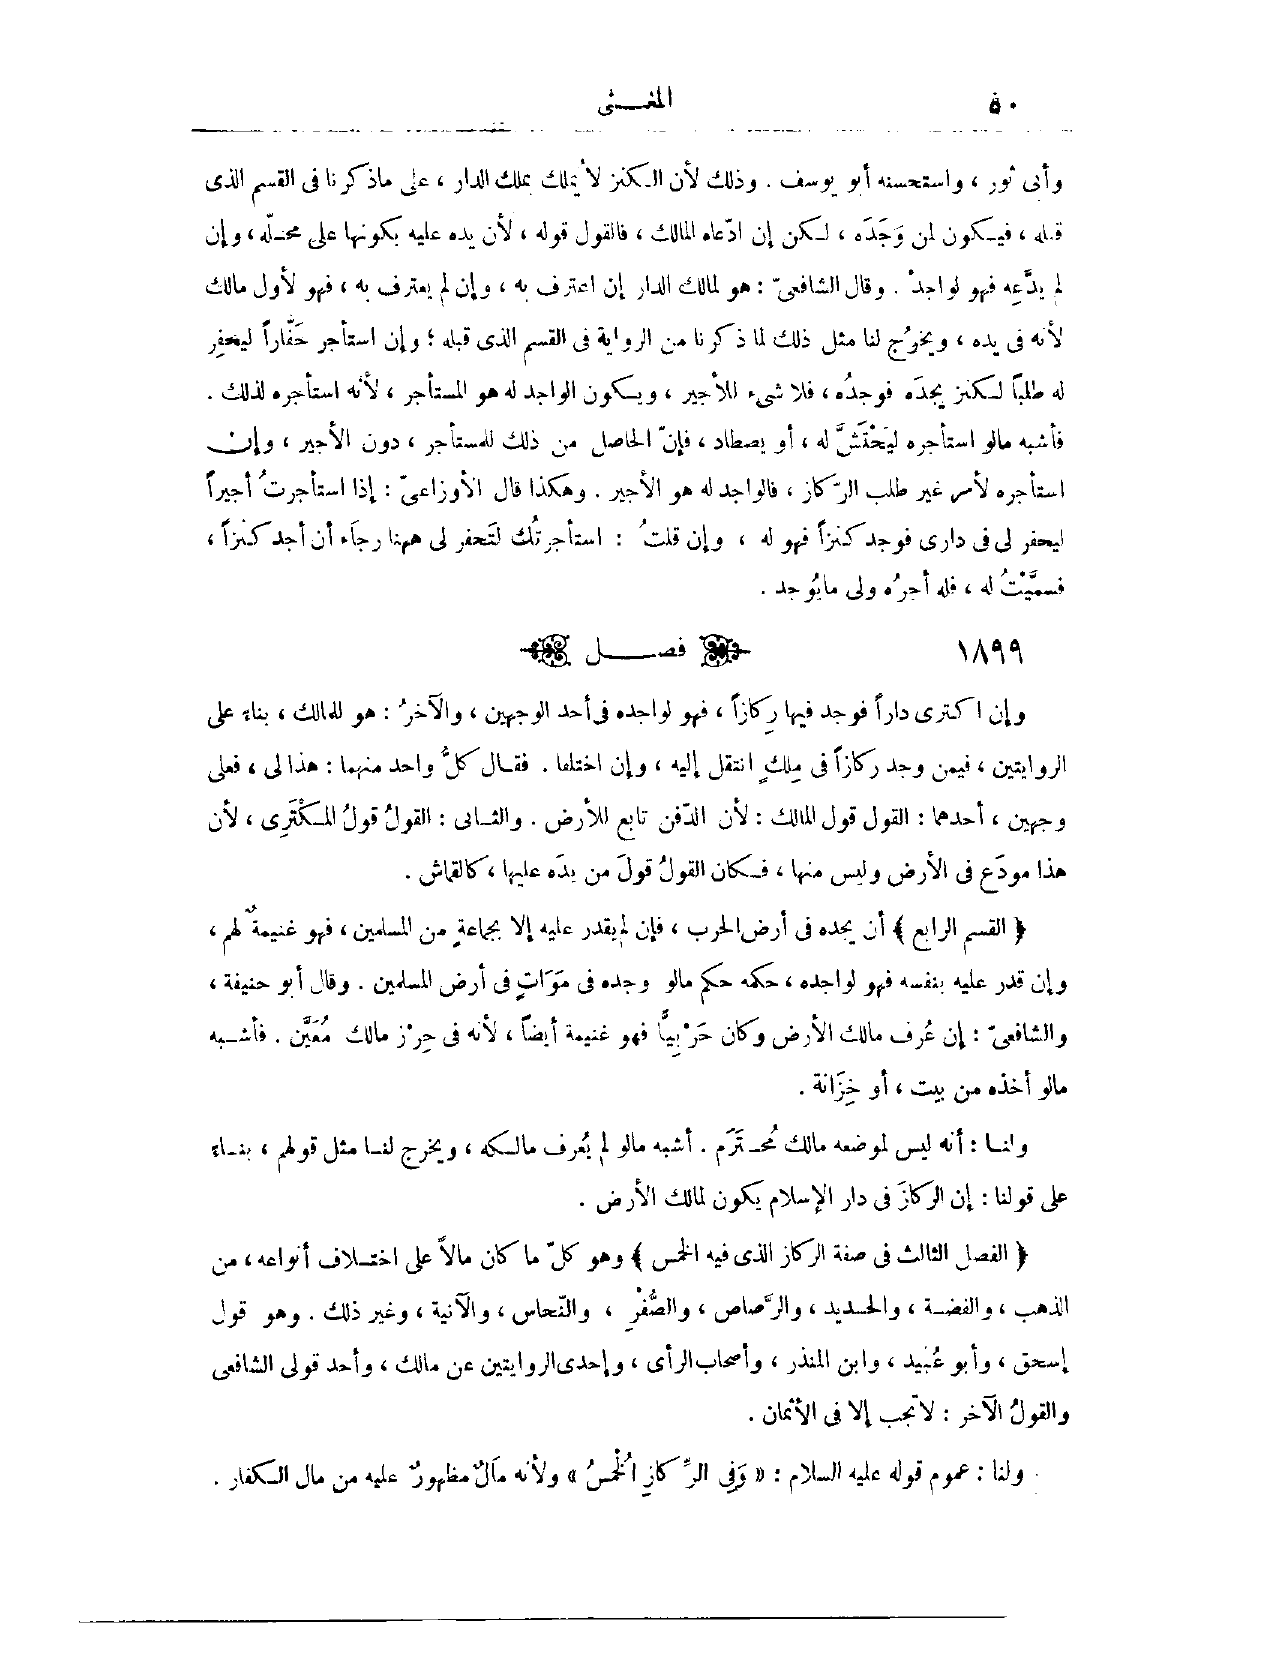 ٥٠
المغــنى
وأبى ثور ، واستحسنه أبو يوسف . وذلك لأن الكنز لا يملك بملك الدار ، على ماذكرنا فى القسم الذى
قبله ، فيكون لمن وَجَدَه ، لكن إن ادّعاه المالك ، فالقول قوله ، لأن يده عليه بكونها على محلّه ، وإن
لم يدَّعِه فهو لواجدهْ . وقال الشافعىّ : هو لمالك الدار إن اعترف به ، وإن لم يعترف به ، فهو لأول مالك
لأنه فى يده ، ويخرُج لنا مثل ذلك لما ذكرنا من الرواية فى القسم الذى قبله ؛ وإن استأجر حَفّاراً ليحفِر
له طلباً لكنز يجدَه فوجدُه ، فلا شىء للأجير ، ويكون الواجد له هو المستأجر ، لأنه استأجره لذلك .
فأشبه مالو استأجره ليَحْتَشَّ له ، أو يصطاد ، فإنّ الحاصل من ذلك للمستأجر ، دون الأجير ، وإن
استأجره لأمر غير طلب الرّكاز ، فالواجد له هو الأجير . وهكذا قال الأوزاعىّ : إذا استأجرتُ أجيراً
ليحفر لى فى دارى فوجد كنزاً فهو له ، وإن قلتُ : استأجرتُك لتَحفر لى ههنا رجاَء أن أجد كنزاً ،
فسمَّيْتُ له ، فله أجرُه ولى مايُوجد .
١٨٩٩
فصــل
وإن اكترى داراً فوجد فيها رِكازاً ، فهو لواجده فى أحد الوجهين ، والآخرُ : هو للمالك ، بناء على
الروايتين ، فيمن وجد ركازاً فى مِلكٍ انتقل إليه ، وإن اختلفا . فقال كلُّ واحد منهما : هذا لى ، فعلى
وجهين ، أحدهما : القول قول المالك : لأن الدّفن تابع للأرض . والثانى : القولُ قولُ المكْتَرِى ، لأن
هذا مودَع فى الأرض وليس منها ، فكان القولُ قولَ من يدَه عليها ، كالقماش .
﴿ القسم الرابع ﴾ أن يجده فى أرض الحرب ، فإن لم يقدر عليه إلا بجماعةٍ من المسلمين ، فهو غنيمةٌ لهم ،
وإن قدر عليه بنفسه فهو لواجده ، حكمه حكم مالو وجده فى مَوَاتٍ فى أرض المسلمين . وقال أبو حنيفة ،
والشافعىّ : إن عُرف مالك الأرض وكان حَرْبِيًّا فهو غنيمة أيضاً ، لأنه فى حِرْز مالك مُعَيَّن . فأشبه
مالو أخذه من بيت ، أو خِزَانة .
ولنا : أنه ليس لموضعه مالك مُحترَم . أشبه مالو لم يُعرف مالكه ، ويخرج لنا مثل قولهم ، بناء
على قولنا : إن الركازَ فى دار الإسلام يكون لمالك الأرض .
﴿ الفصل الثالث فى صفة الركاز الذى فيه الخمس ﴾ وهو كلّ ما كان مالاً على اختلاف أنواعه ، من
الذهب ، والفضة ، والحديد ، والرَّصاص ، والصُّفْرِ ، والنّحاس ، والآنية ، وغير ذلك . وهو قول
إسحق ، وأبو عُبيد ، وابن المنذر ، وأصحاب الرأى ، وإحدى الروايتين عن مالك ، وأحد قولى الشافعى
والقولُ الآخر : لا تجب إلا فى الأثمان .
ولنا : عموم قوله عليه السلام : « وَفِى الرِّكازِ الُخمسُ » ولأنه مَالٌ مظهورٌ عليه من مال الكفار .